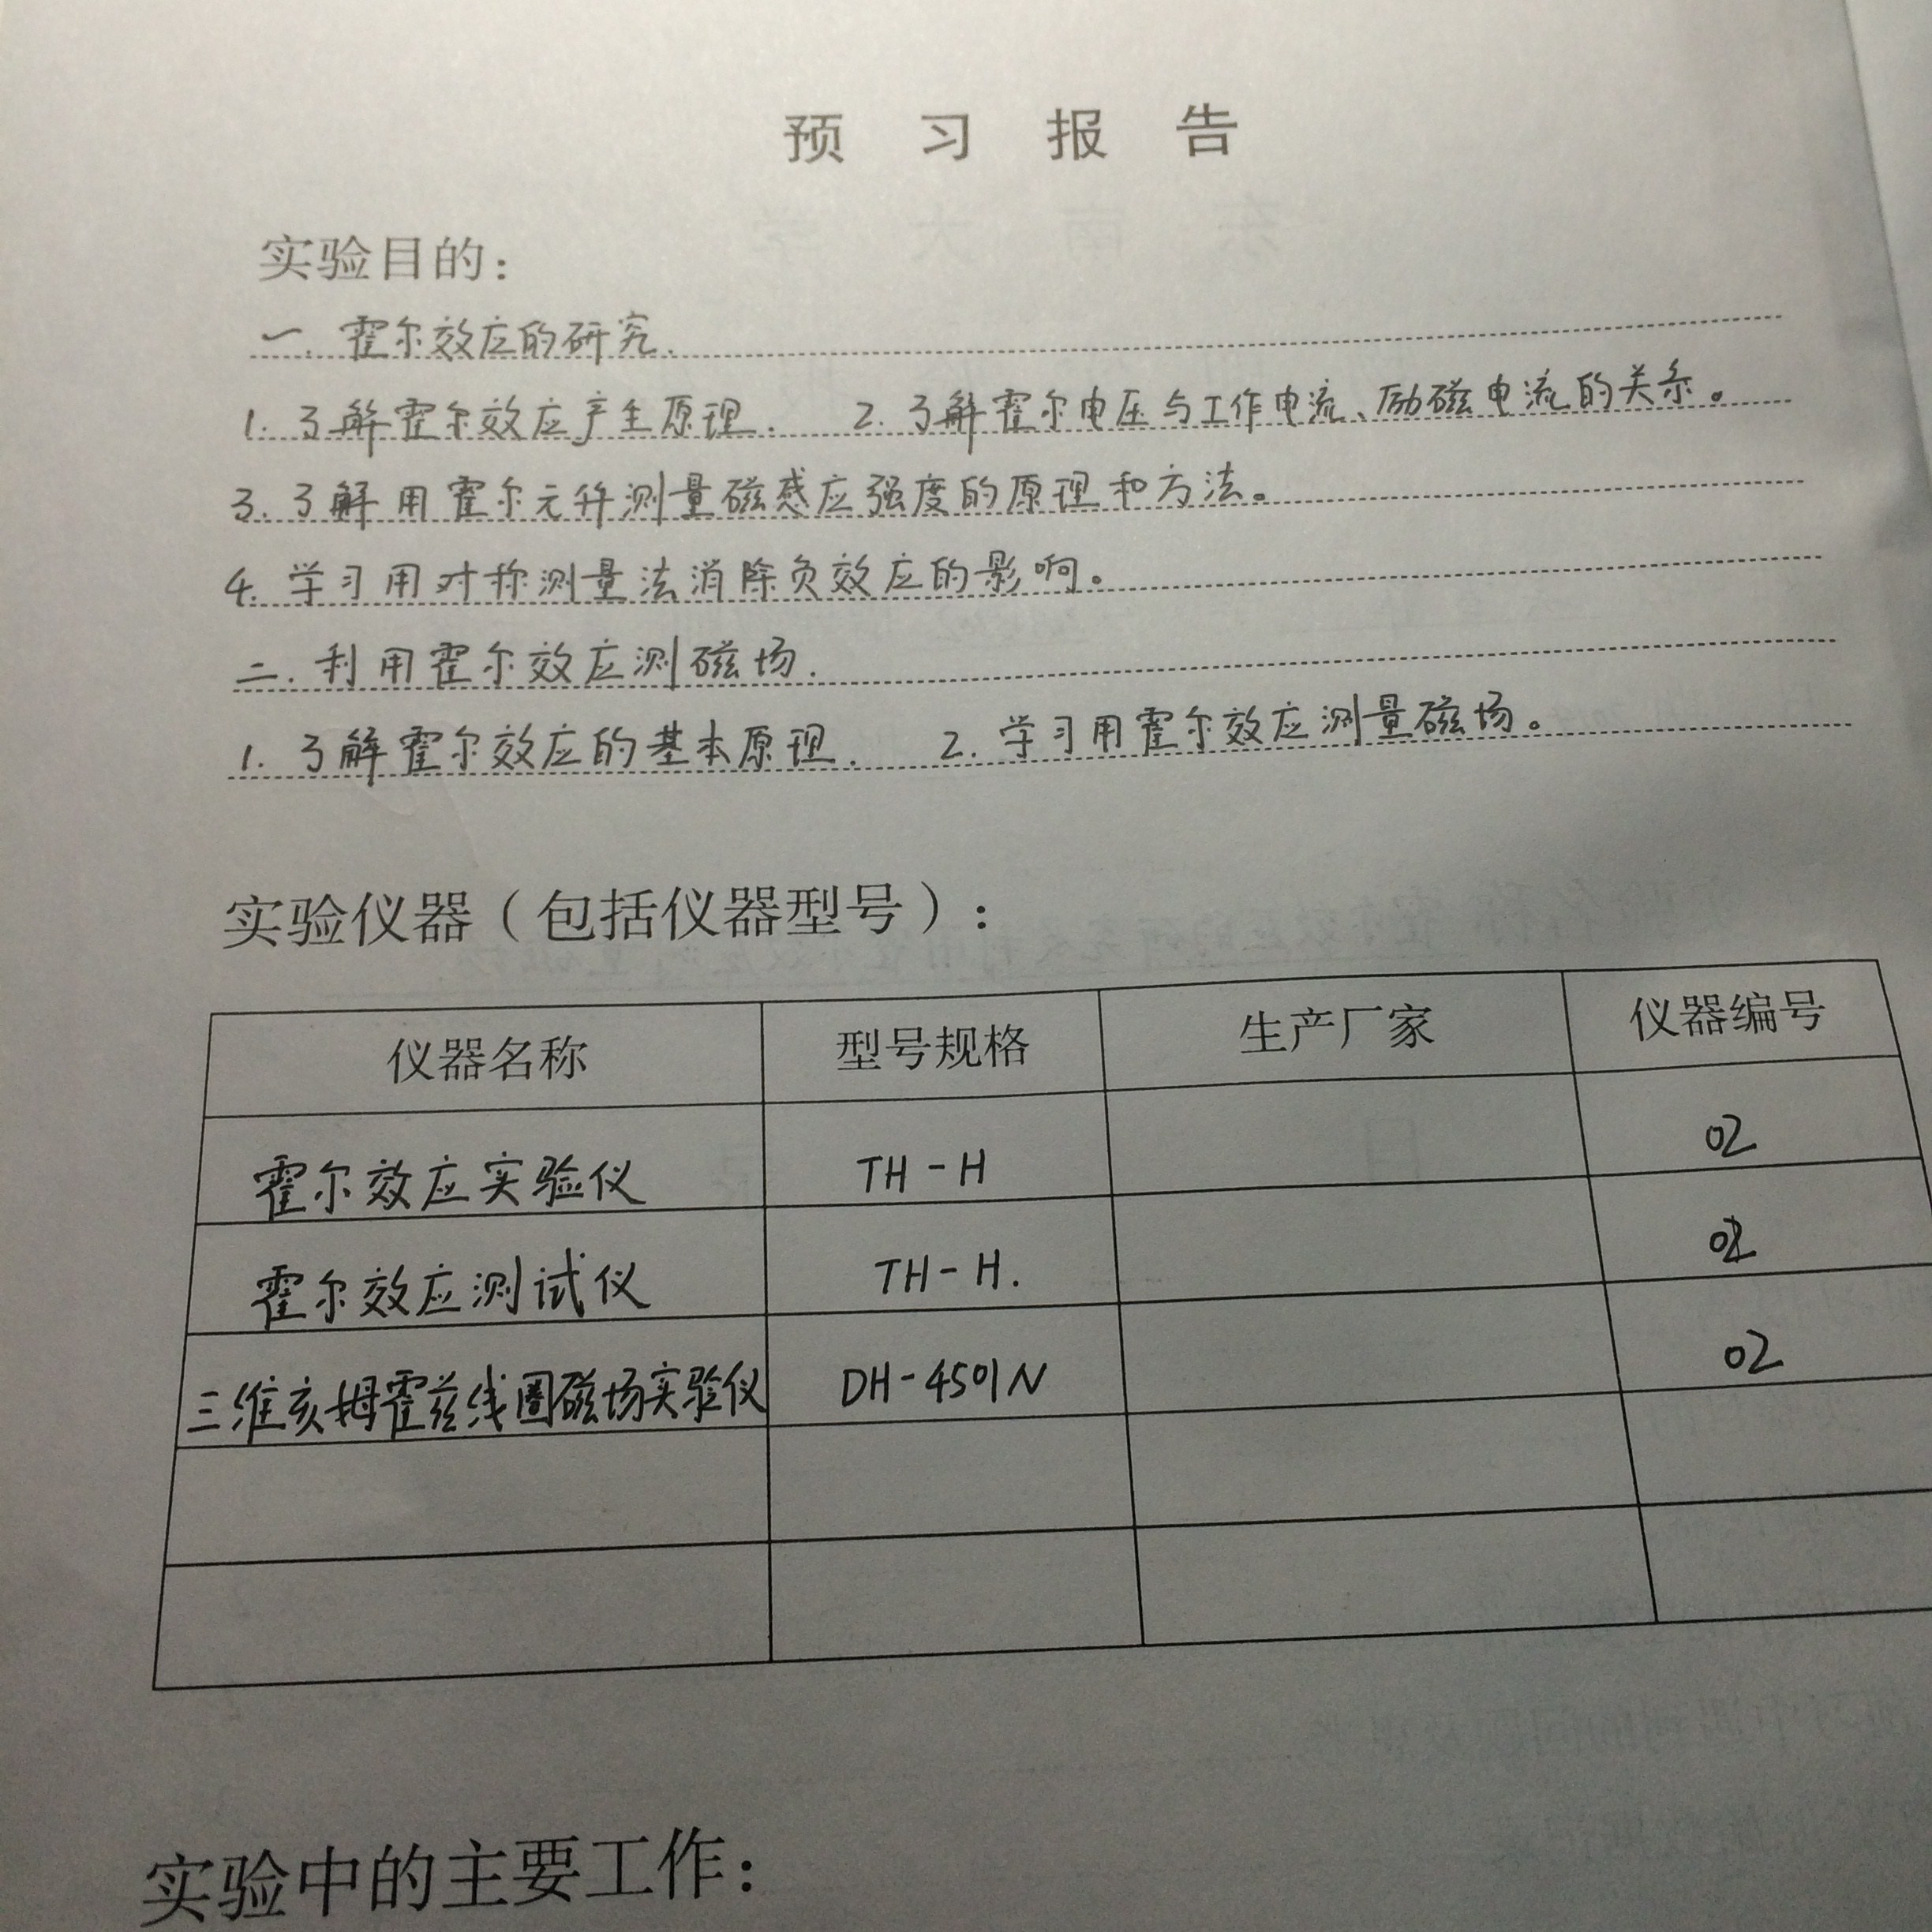 预习报告
实验目的:
一. 霍尔效应的研究.
1. 了解霍尔效应产生原理. 2. 了解霍尔电压与工作电流、励磁电流的关系。
3. 了解用霍尔元件测量磁感应强度的原理和方法。
4. 学习用对称测量法消除负效应的影响。
二. 利用霍尔效应测磁场.
1. 了解霍尔效应的基本原理. 2. 学习用霍尔效应测量磁场。
实验仪器(包括仪器型号):
仪器名称 型号规格 生产厂家 仪器编号
霍尔效应实验仪 TH-H 02
霍尔效应测试仪 TH-H. 02
三维亥姆霍兹线圈磁场实验仪 DH-4501N 02
实验中的主要工作: